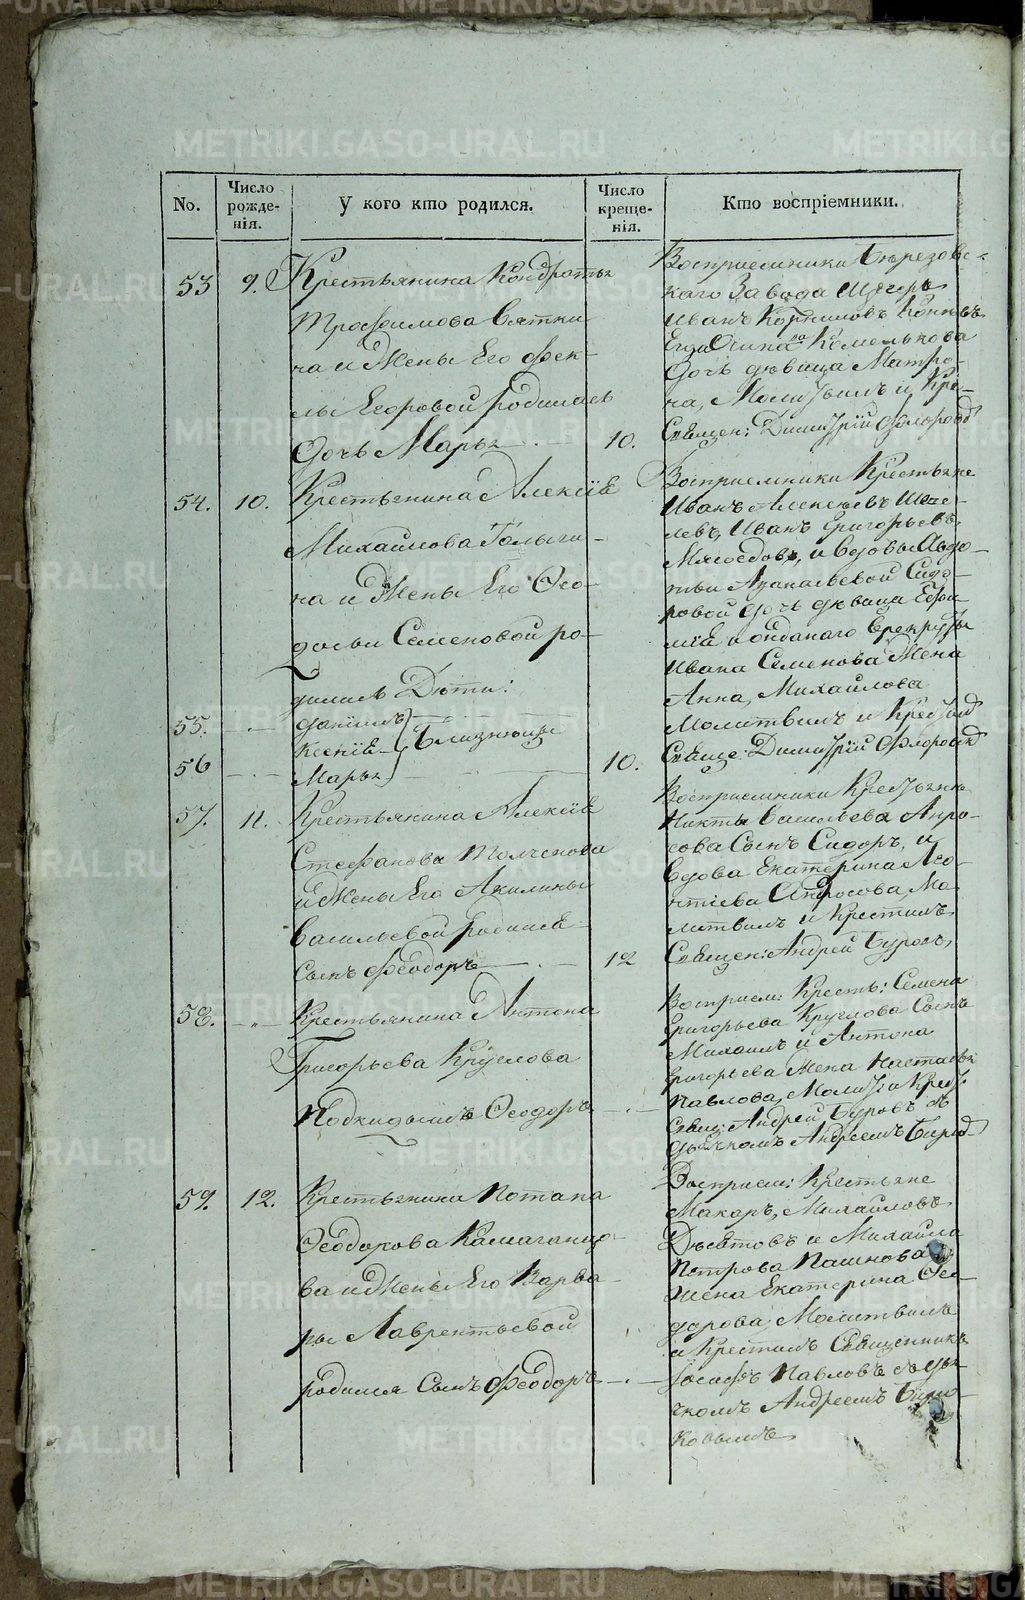 No.
Число рожде-нія.
У кого кто родился.
Число креще-нія.
Кто воспріемники.
53
9.
Крестьянина Кондратья
Трофимова Вятки
на и Жены Его Фек-
лы Егоровой родилась
Дочь Марья
10.
Восприемники Березовс-
каго Завода
Иванъ Корниловъ
Дочь девица Матро-
на, Молитвилъ и Кре-
Священ: Димитрій Флоровъ
54.
10.
Крестьянина Алексѣя
Михайлова Голыги-
на и Жены Его Фео-
досьи Семеновой ро-
дились Дѣти:
55.
Даніилъ
Ксенія
Близнецы
56
Марья
10.
Восприемники Крестьяне
Иванъ Алексѣевъ
левъ, Иванъ Григорьевъ
Мясоедовъ, и Вдовы Авдо-
тьи Афанасьевой Сидо-
ровой Дочь девица Ефи-
мія и отданаго в рекруты
Ивана Семенова Жена
Анна Михайлова
Молитвилъ и Крестилъ
Свяще: Димитрій Флоровъ
57.
11.
Крестьянина Алексѣя
Стефанова Толченова
и Жены Его Акилины
Васильевой родился
Сынъ Феодоръ
12
Восприемники Крестьяни
Никиты Васильева Андро-
сова Сынъ Сидоръ, и
Вдова Екатерина Лео-
нтіева Андросова, Мо-
литвилъ и Крестилъ
Священ: Андрей Буровъ
58.
Крестьянина Антона
Григорьева Круглова
Подкидышъ Феодоръ
Восприем: Кресть: Семена
Григорьева Круглова Сынъ
Михаилъ и Антона
Григорьева Жена Настасья
Павлова, Молит: и Крест:
Свящ: Андрей Буровъ с
Дьячкомъ Андреемъ Бирю-
59.
12.
Крестьянина Потапа
Феодорова Камаганцо-
ва и Жены Его Варва-
ры Лаврентьевой
родился Сынъ Феодоръ
Восприем: Крестьяне
Макаръ Михайловъ
Девятовъ и Михаила
Петрова Пашнова
Жена Екатерина Фео-
дорова Молитвилъ
и Крестилъ Священникъ
Іосифъ Павловъ с Дья-
чкомъ Андреемъ Бирю-
ковымъ
METRIKI.GASO-URAL.RU